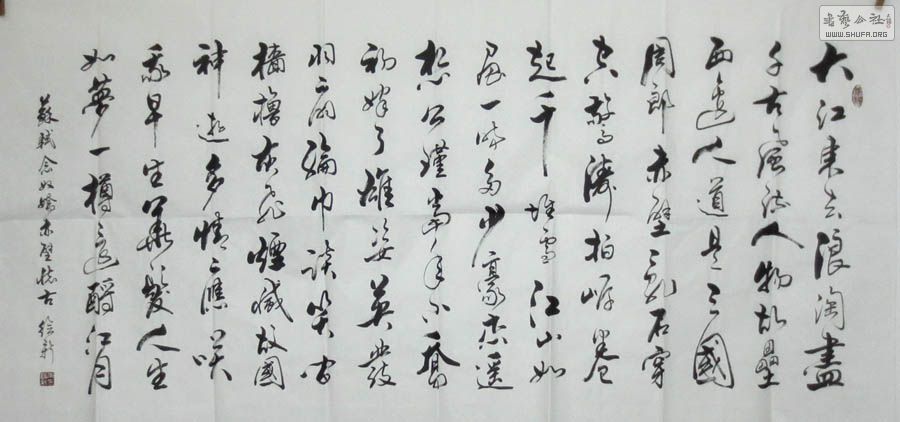 大江東去浪淘盡
千古風流人物故壘
西邊人道是三國
周郎赤壁亂石穿
空驚濤拍岸卷
起千堆雪江山如
畫一時多少豪杰遥
想公瑾當年小喬
初嫁了雄姿英發
羽扇綸巾談笑間
檣櫓灰飛煙滅故國
神遊多情應笑
我早生華髮人生
如夢一樽還酹江月
蘇軾念奴嬌赤壁懷古
WWW.SHUFA.ORG